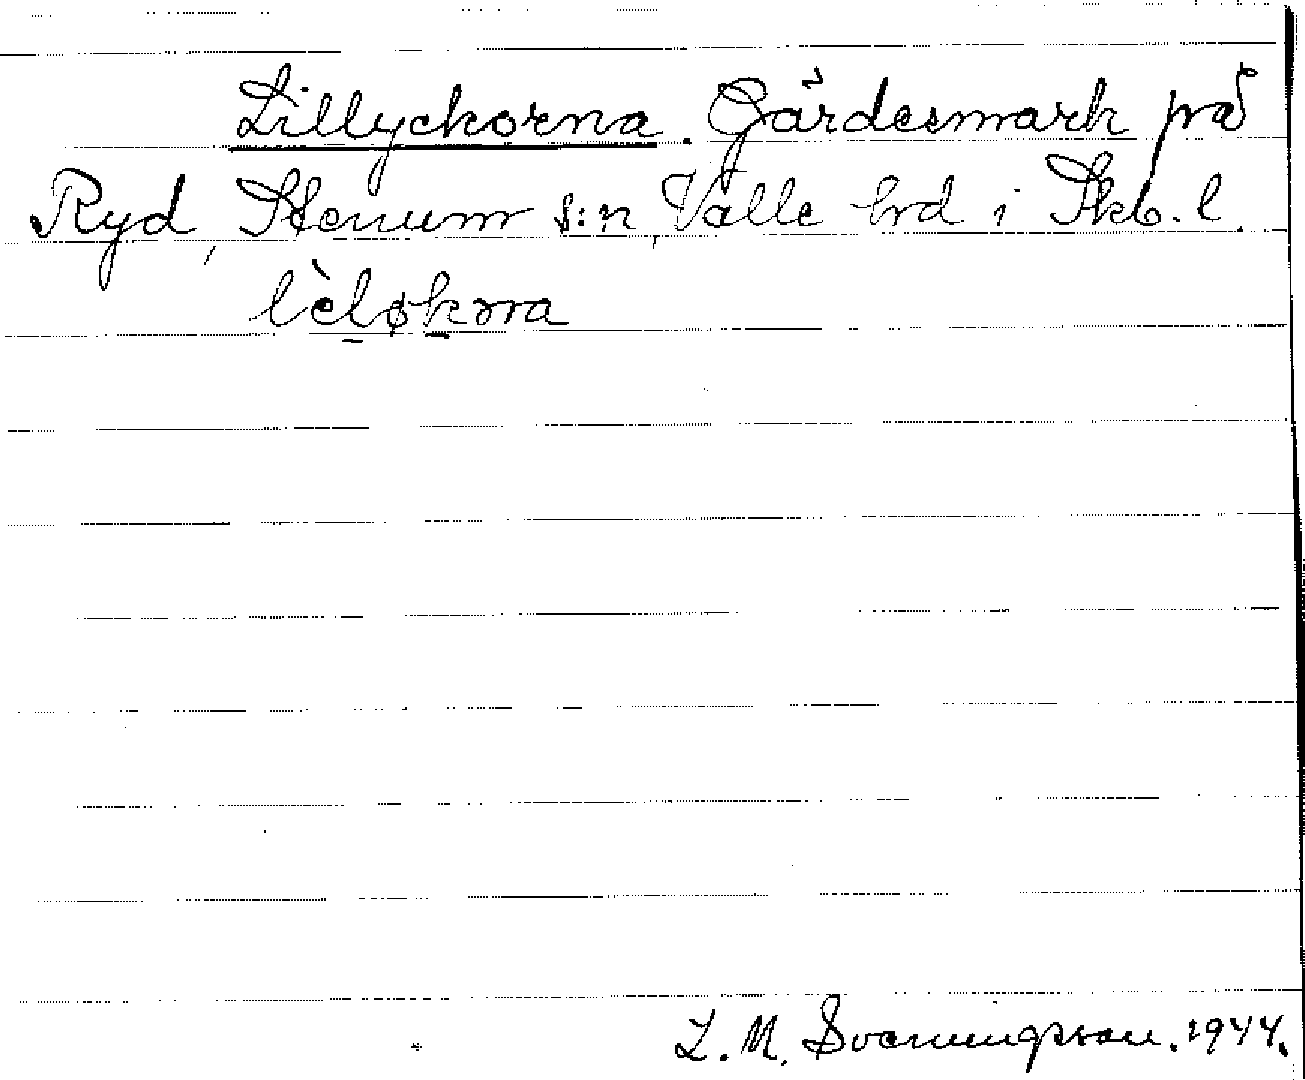 Lillyckorna. Gärdesmark på
Ryd, Stenum s:n, Valle hrd i Skb. l.
lèløkɔrɴa
L. M. Svenungsson. 1944.